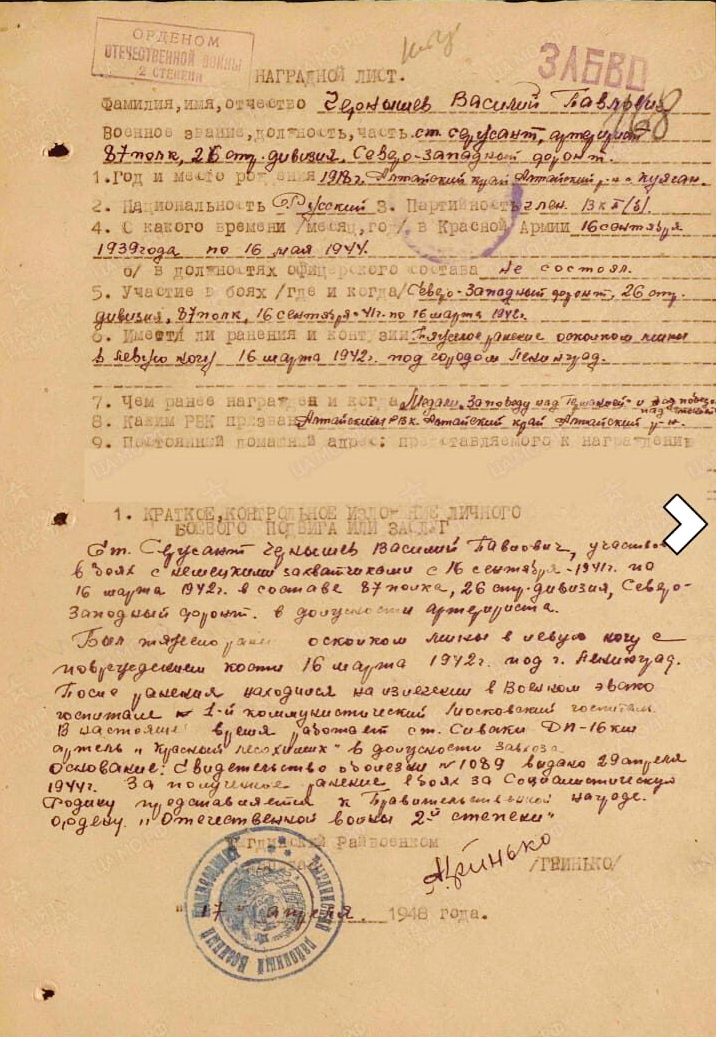 ОРДЕНОМ
ОТЕЧЕСТВЕННОЙ ВОЙНЫ
2 СТЕПЕНИ
ЗАБВО
НАГРАДНОЙ ЛИСТ.
Фамилия,имя,отчество Чернышев Василий Павлович
Военное звание,должность,часть ст. сержант, артеририст
87 полк, 26 стр. дивизия, Северо-Западный фронт.
1.Год и место рождения 1918г. Алтайский край Алтайский р-н с. Куяган.
2. Национальность Русский 3. Партийность член ВКП/б/.
4. С какого времени /месяц,год/ в Красной Армии 16 сентября
1939 года по 16 мая 1944.
б/ в должностях офицерского состава не состоял.
5. Участие в боях /где и когда/ Северо-Западный фронт, 26 стр.
дивизия, 87 полк, 16 сентября-41г. по 16 марта 1942г.
6. Имеет ли ранения и контузии Тяжелое ранение осколком мины
в левую ногу 16 марта 1942г. под городом Ленинград.
7. Чем ранее награжден и когда Медали „За победу над Германией" и
8. Каким РВК призван Алтайским РВК. Алтайский край Алтайский р-н.
9. Постоянный домашний адрес: представляемого к награждению
1. КРАТКОЕ,КОНТРОЛЬНОЕ ИЗЛОЖЕНИЕ ЛИЧНОГО
БОЕВОГО ПОДВИГА ИЛИ ЗАСЛУГ
Ст. Сержант Чернышев Василий Павлович, участвов
в боях с немецкими захватчиками с 16 сентября-1941г. по
16 марта 1942г. в составе 87 полка, 26 стр. дивизия, Северо-
Западный фронт. в должности артериста.
Был тяжело ранен осколком мины в левую ногу с
повреждением кости 16 марта 1942г. под г. Ленинград.
После ранения находился на излечении в Военном эвако
госпитале 1-й коммунистический Московский госпиталь
В настоящее время работает ст. Сиваки ДП-16 км
артель „Красный лесохимик" в должности завхоза
Основание: Свидетельство о болезни №1089 выдано 29 апреля
1944г. За полученное ранение в боях за Социалистическую
Родину представляется к Правительственной награде.
ордену „Отечественной войны 2й степени"
Райвоенком
/ГРИНЬКО/
"17" апреля 1948 года.